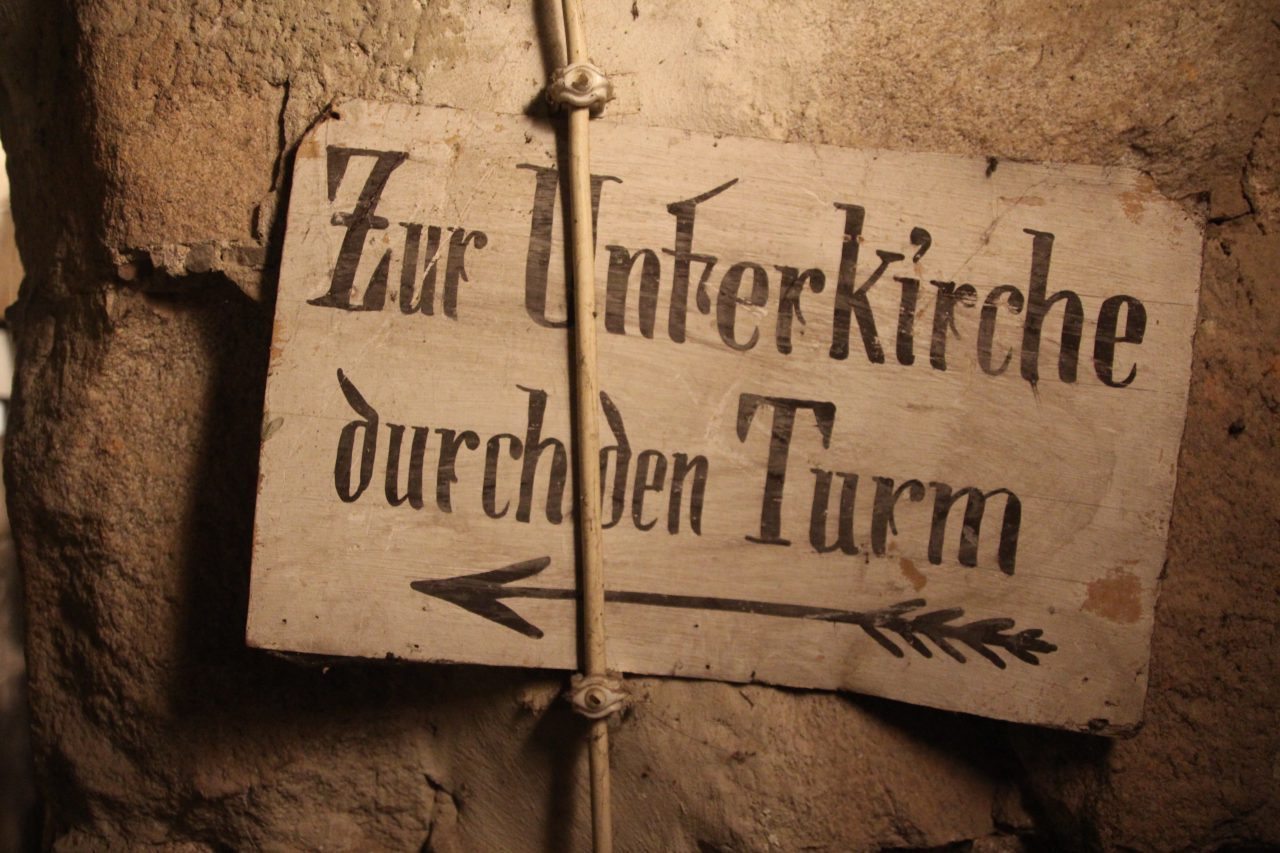 Zur Unterkirche
durch den Turm